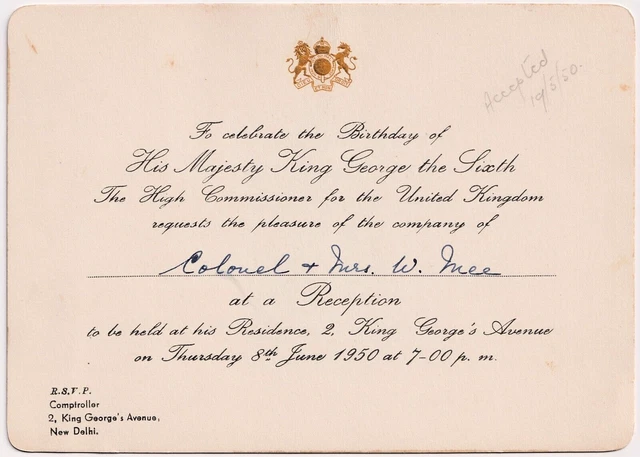 Accepted
19/5/50.
To celebrate the Birthday of
His Majesty King George the Sixth
The High Commissioner for the United Kingdom
requests the pleasure of the company of
Colonel + Mrs. W. Mee
at a Reception
to be held at his Residence, 2, King George's Avenue
on Thursday 8th June 1950 at 7-00 p. m.
R.S.V.P.
Comptroller
2, King George's Avenue,
New Delhi.